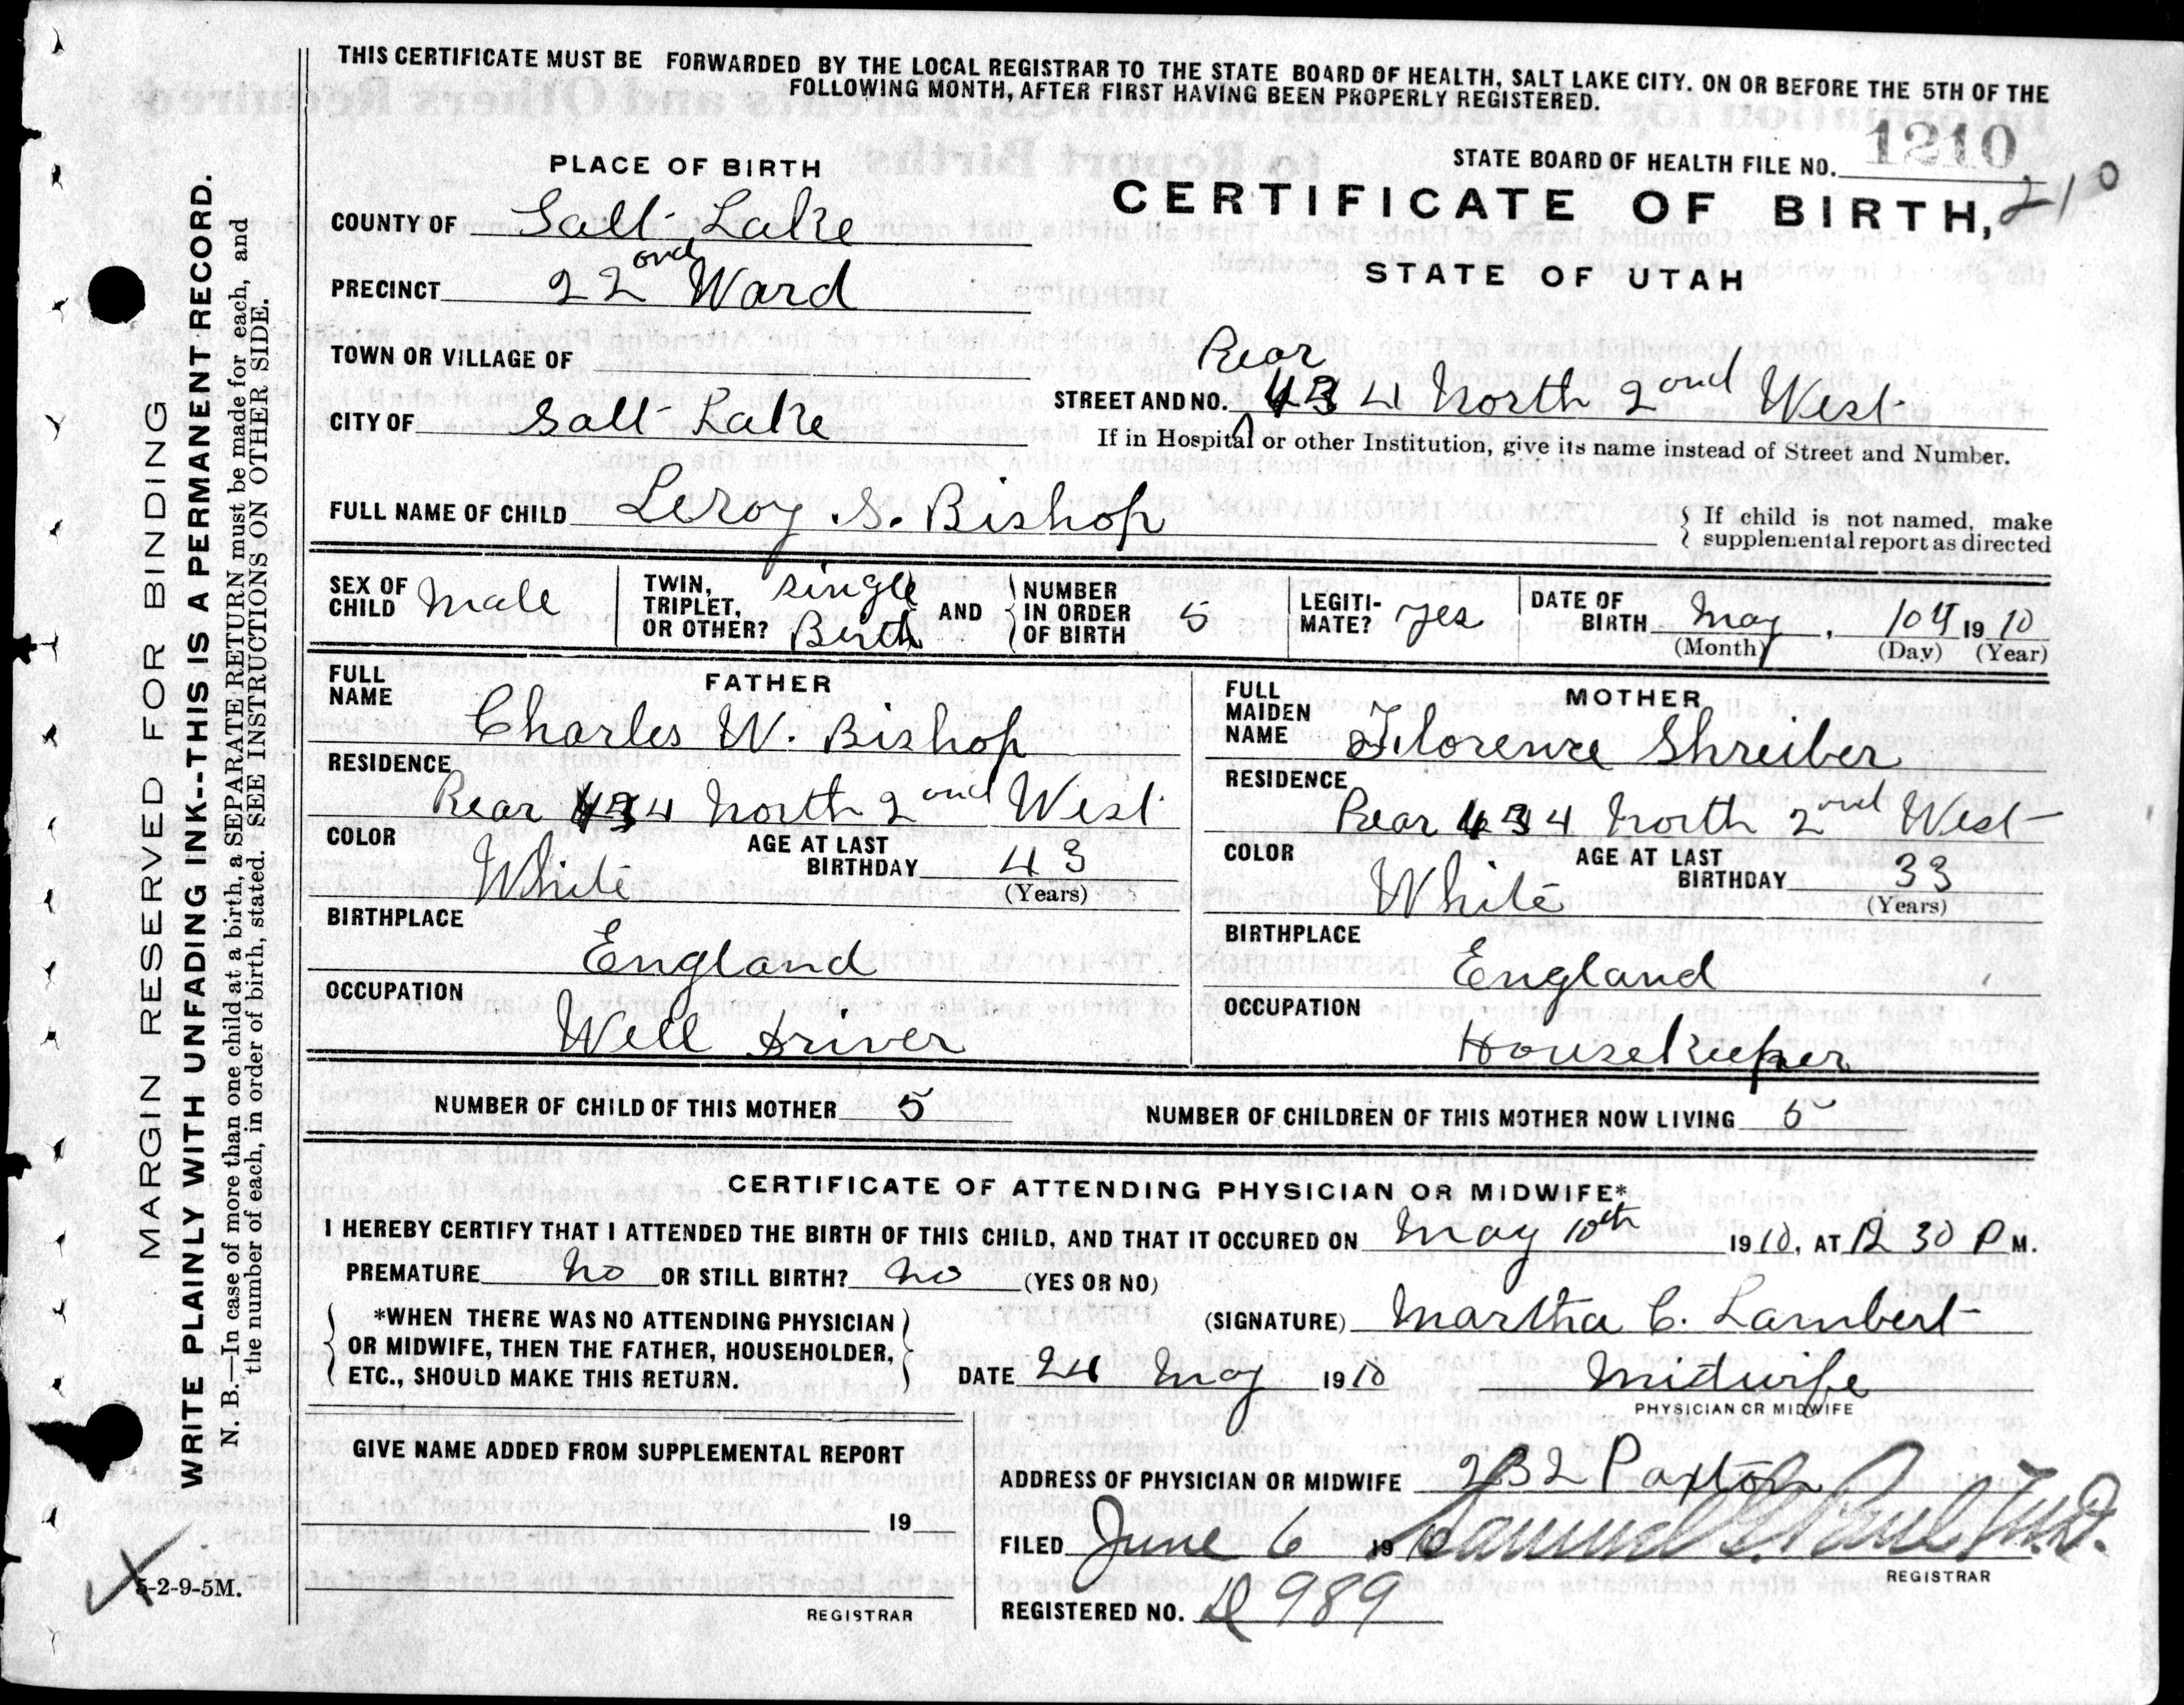 THIS CERTIFICATE MUST BE FORWARDED BY THE LOCAL REGISTRAR TO THE STATE BOARD OF HEALTH, SALT LAKE CITY. ON OR BEFORE THE 5TH OF THE
FOLLOWING MONTH, AFTER FIRST HAVING BEEN PROPERLY REGISTERED.
STATE BOARD OF HEALTH FILE NO. 1210
210
CERTIFICATE OF BIRTH,
STATE OF UTAH
PLACE OF BIRTH
COUNTY OF Salt Lake
PRECINCT 22ond Ward
TOWN OR VILLAGE OF
CITY OF Salt Lake
Rear
STREET AND NO. 434 North 2ond West
If in Hospital or other Institution, give its name instead of Street and Number.
FULL NAME OF CHILD Leroy S. Bishop
If child is not named, make
supplemental report as directed
SEX OF CHILD Male
TWIN, TRIPLET, OR OTHER? Single Birth
AND NUMBER IN ORDER OF BIRTH 5
LEGITIMATE? yes
DATE OF BIRTH May, 10th 1910
(Month) (Day) (Year)
FATHER
FULL NAME Charles W. Bishop
RESIDENCE Rear 434 North 2ond West
COLOR White
AGE AT LAST BIRTHDAY 43
(Years)
BIRTHPLACE England
OCCUPATION Well driver
MOTHER
FULL MAIDEN NAME Florence Shreiber
RESIDENCE Rear 434 North 2ond West
COLOR White
AGE AT LAST BIRTHDAY 33
(Years)
BIRTHPLACE England
OCCUPATION Housekeeper
NUMBER OF CHILD OF THIS MOTHER 5
NUMBER OF CHILDREN OF THIS MOTHER NOW LIVING 5
CERTIFICATE OF ATTENDING PHYSICIAN OR MIDWIFE*
I HEREBY CERTIFY THAT I ATTENDED THE BIRTH OF THIS CHILD, AND THAT IT OCCURED ON May 10th 1910, AT 12 30 P M.
PREMATURE no OR STILL BIRTH? no (YES OR NO)
*WHEN THERE WAS NO ATTENDING PHYSICIAN
OR MIDWIFE, THEN THE FATHER, HOUSEHOLDER,
ETC., SHOULD MAKE THIS RETURN.
(SIGNATURE) Martha C. Lambert
DATE 24 May 1910
Midwife
PHYSICIAN OR MIDWIFE
GIVE NAME ADDED FROM SUPPLEMENTAL REPORT
19
REGISTRAR
ADDRESS OF PHYSICIAN OR MIDWIFE 232 Paxton
FILED June 6 1910 Samuel G. Paul M.D.
REGISTRAR
REGISTERED NO. D 989
MARGIN RESERVED FOR BINDING
WRITE PLAINLY WITH UNFADING INK--THIS IS A PERMANENT RECORD.
N. B.—In case of more than one child at a birth, a SEPARATE RETURN must be made for each, and
the number of each, in order of birth, stated. SEE INSTRUCTIONS ON OTHER SIDE.
5-2-9-5M.